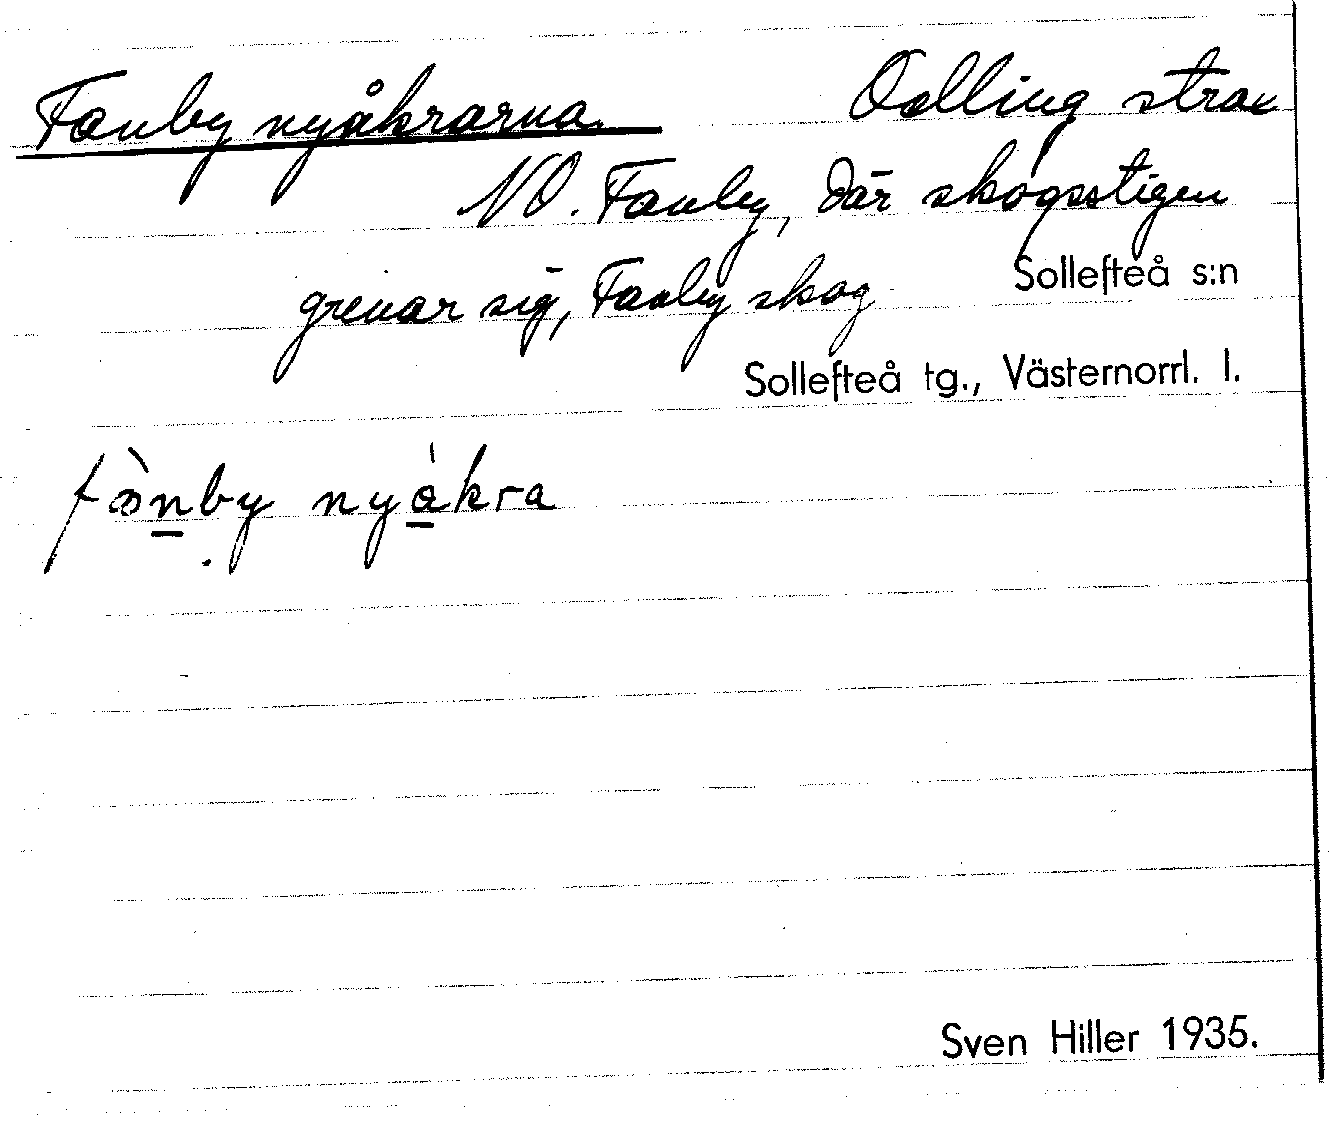 Fanby nyåkrarna Odling strax
NO. Fanby, där skogsstigen
grenar sig, Fanby skog
Sollefteå s:n
Sollefteå tg., Västernorrl. l.
nyåkra
Sven Hiller 1935.